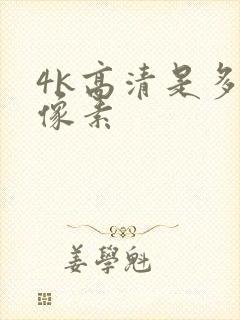 4k高清是多
像素
姜學魁